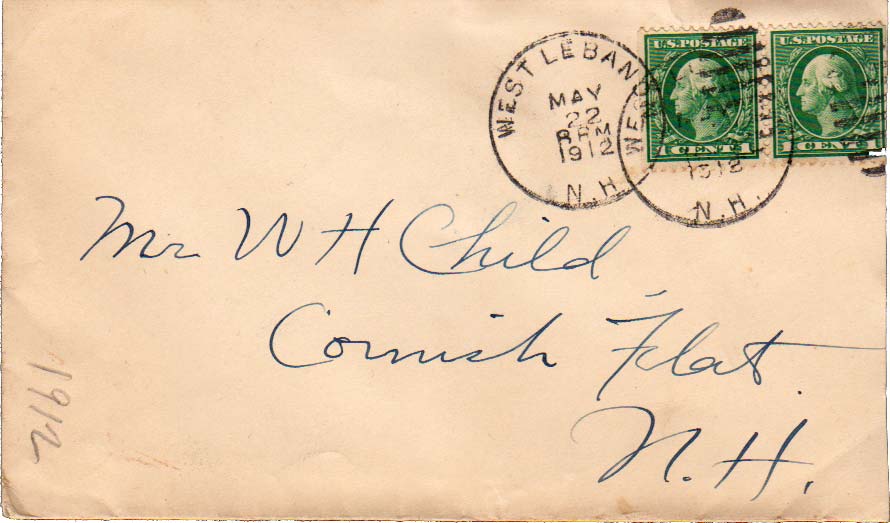 WEST LEBANON
MAY
22
PM
1912
N.H.
WEST
1912
N.H.
U.S. POSTAGE
1 CENT 1
U.S. POSTAGE
1 CENT 1
Mr W H Child
Cornish Flat
N.H.
1912